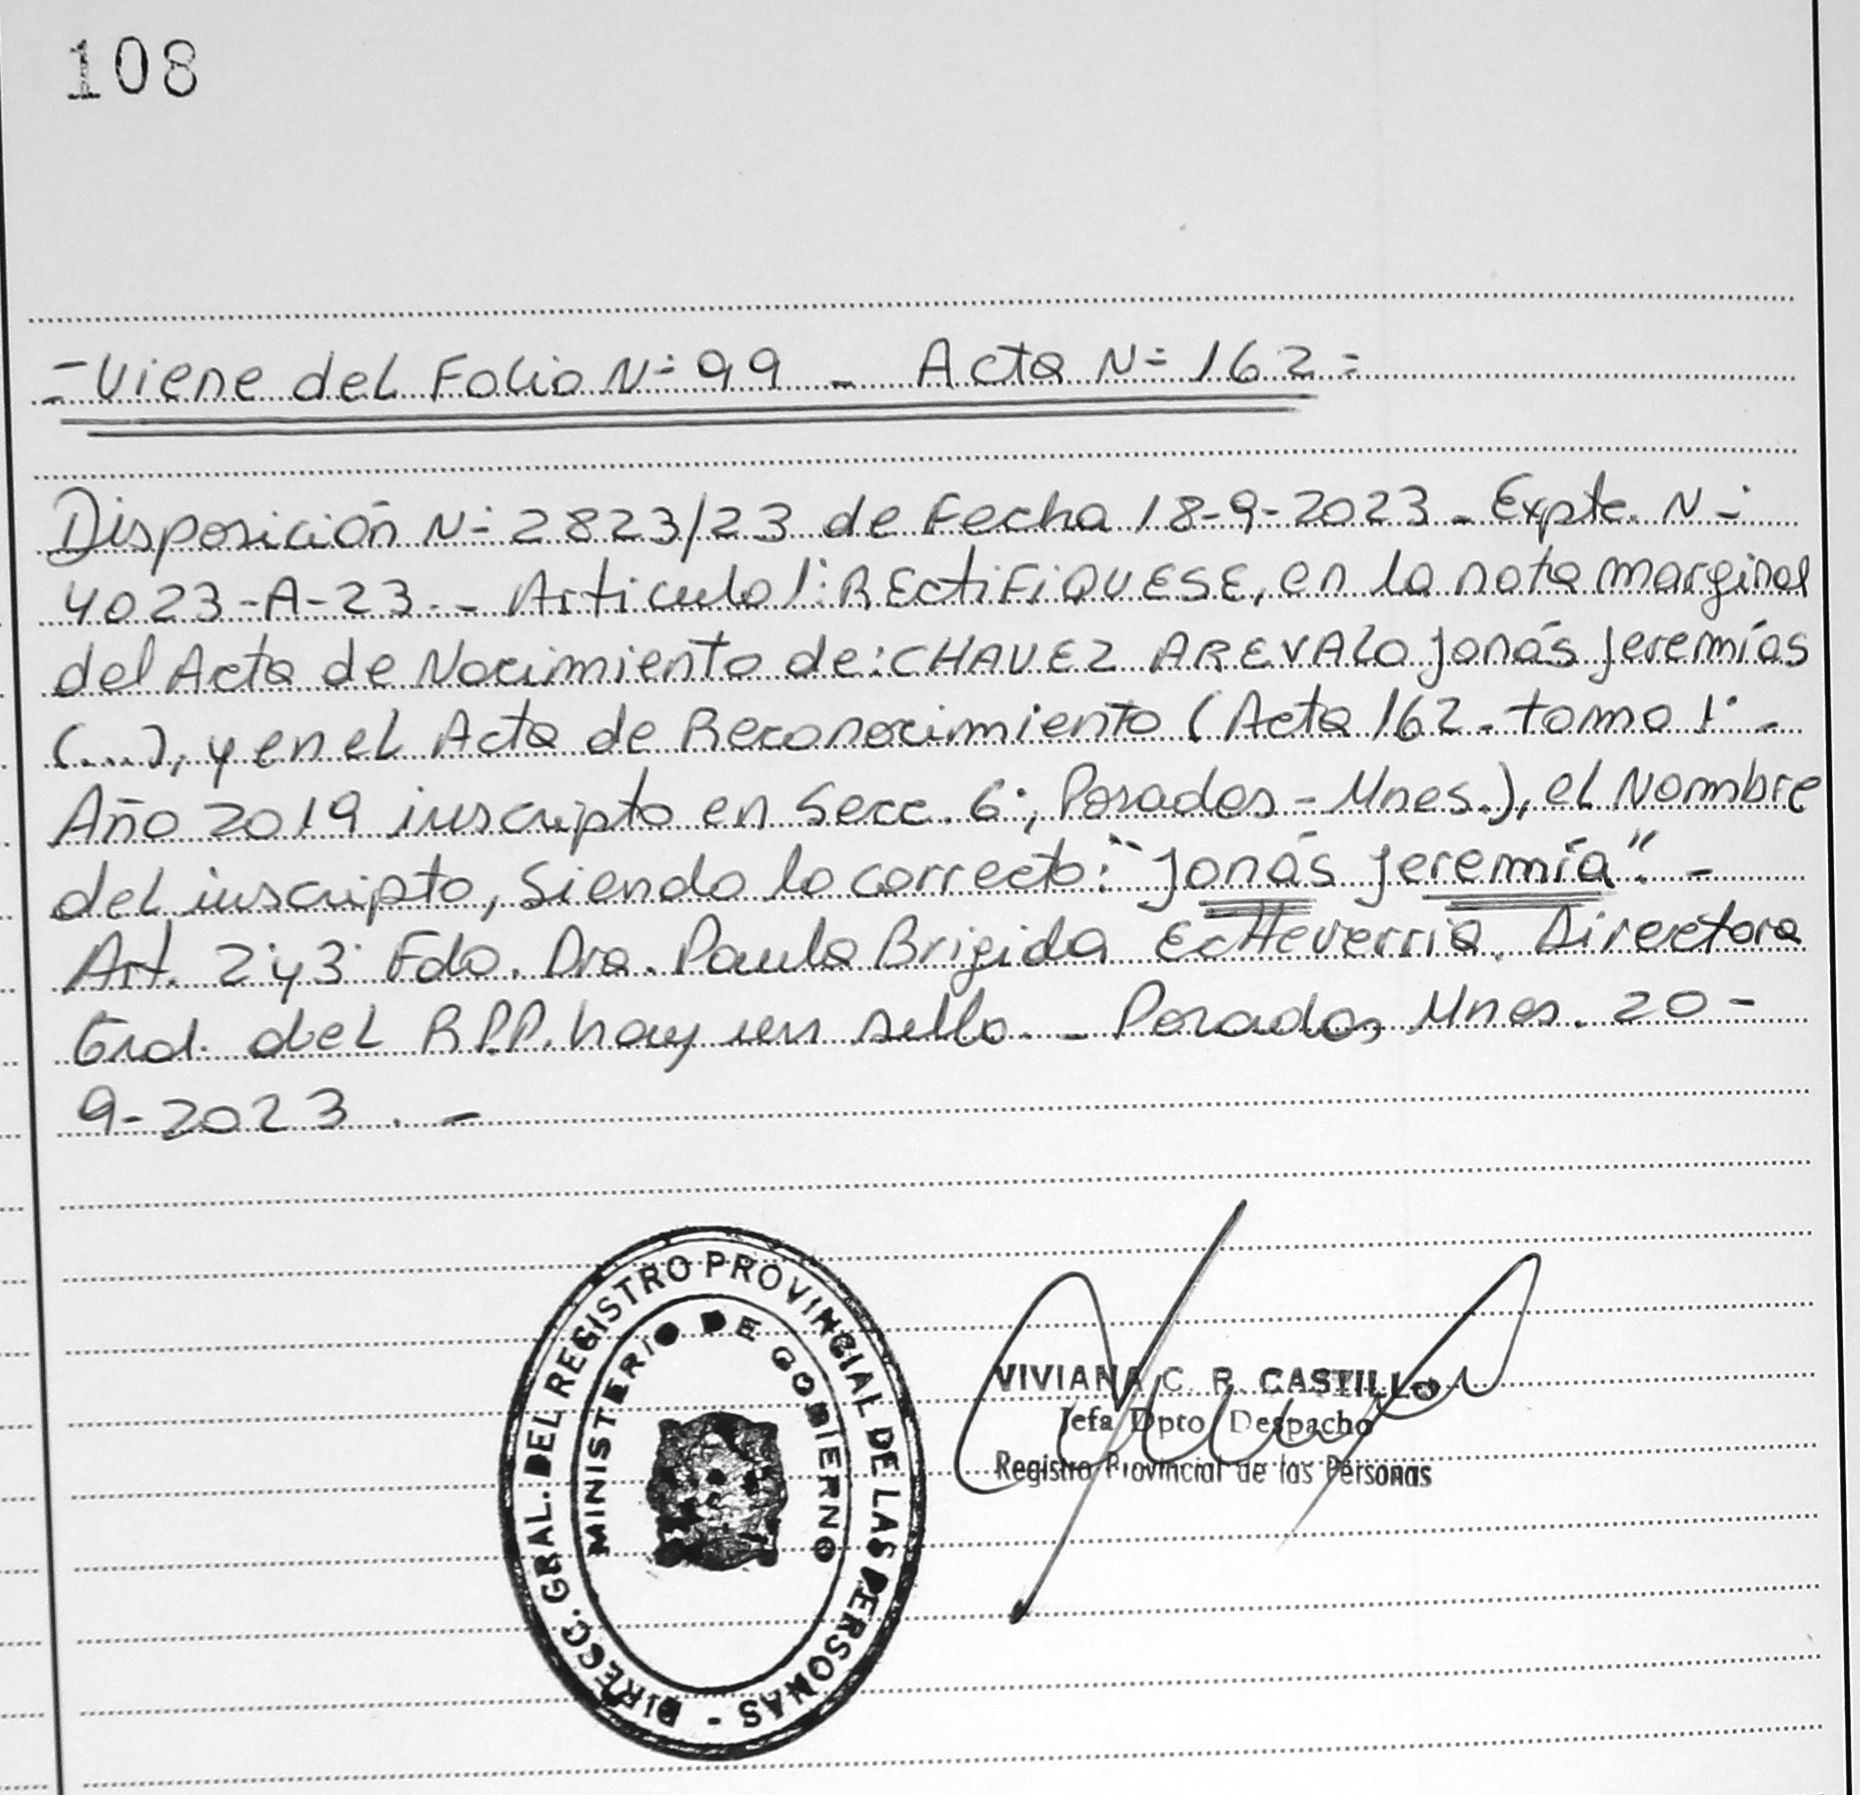 108
= Viene del Folio Nº 99 - Acta Nº 162 =
Disposición Nº 2823/23 de Fecha 18-9-2023 - Expte. Nº
4023-A-23.- Articulo 1º: RECtiFiQUESE, en la nota marginal
del Acta de Nacimiento de: CHAVEZ AREVALO Jonás Jeremías
(....), y en el Acta de Reconocimiento (Acta 162 - tomo 1º -
Año 2019 inscripto en Secc. 6º, Posadas - Mnes.), el Nombre
del inscripto, Siendo lo correcto: "Jonás Jeremía". -
Art. 2º y 3º Fdo. Dra. Paula Brigida Echeverria. Directora
Gral. del R.P.P. hay un sello. - Posadas, Mnes. 20 -
9-2023 . -
DIRECC. GRAL. DEL REGISTRO PROVINCIAL DE LAS PERSONAS -
MINISTERIO DE GOBIERNO
VIVIANA C. R. CASTILLO
Jefa Dpto Despacho
Registro Provincial de las Personas